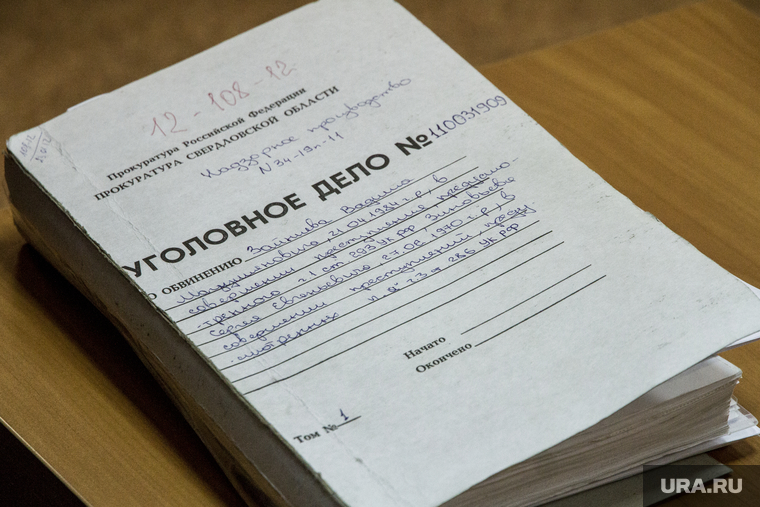 12-108-12
Прокуратура Российской Федерации
ПРОКУРАТУРА СВЕРДЛОВСКОЙ ОБЛАСТИ
Надзорное производство
N 34-19п-11
УГОЛОВНОЕ ДЕЛО № 110031909
ПО ОБВИНЕНИЮ Зайтиева Вадима
21.04.1984 г.р., в
совершении преступления, предусмо-
-тренного ст 203 УК РФ, Зиновьева
Сергея Евгеньевича 27.08.1970 г.р., в
совершении преступлений, преду
-смотренных п. 3 ст 286 УК РФ
Начато
Окончено
Том № 1
URA.RU